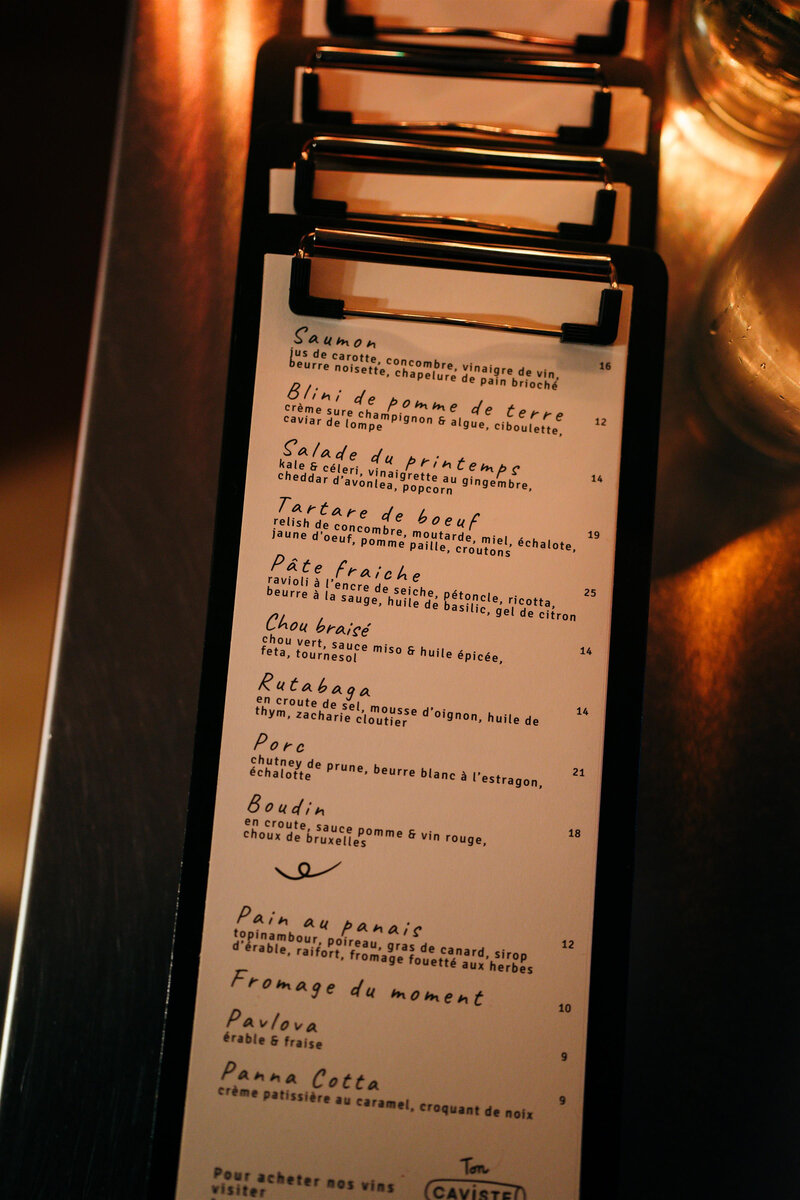 Saumon
jus de carotte, concombre, vinaigre de vin, 16
beurre noisette, chapelure de pain brioché
Blini de pomme de terre
crème sure champignon & algue, ciboulette, 12
caviar de lompe
Salade du printemps
kale & céleri, vinaigrette au gingembre, 14
cheddar d'avonlea, popcorn
Tartare de boeuf
relish de concombre, moutarde, miel, échalote, 19
jaune d'oeuf, pomme paille, croutons
Pâte fraiche
ravioli à l'encre de seiche, pétoncle, ricotta, 25
beurre à la sauge, huile de basilic, gel de citron
Chou braisé
chou vert, sauce miso & huile épicée, 14
feta, tournesol
Rutabaga
en croute de sel, mousse d'oignon, huile de 14
thym, zacharie cloutier
Porc
chutney de prune, beurre blanc à l'estragon, 21
échalotte
Boudin
en croute, sauce pomme & vin rouge, 18
choux de bruxelles
Pain au panais
topinambour, poireau, gras de canard, sirop 12
d'érable, raifort, fromage fouetté aux herbes
Fromage du moment 10
Pavlova
érable & fraise 9
Panna Cotta
crème patissière au caramel, croquant de noix 9
Pour acheter nos vins
visiter
Ton
CAVISTE